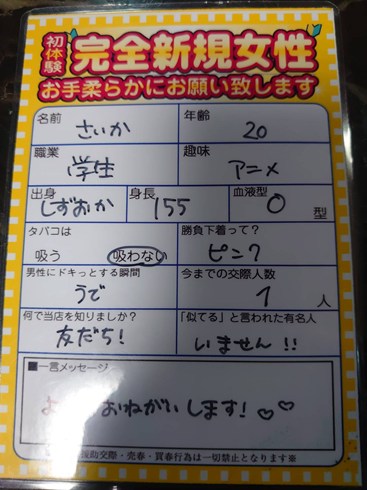 初体験 完全新規女性
お手柔らかにお願い致します
名前 さいか 年齢 20
職業 学生 趣味 アニメ
出身 しずおか 身長 155 血液型 O 型
タバコは 勝負下着って?
吸う 吸わない ピンク
男性にドキっとする瞬間 今までの交際人数
うで 1 人
何で当店を知りましたか? 「似てる」と言われた有名人
友だち! いません!!
■一言メッセージ
おねがいします!♡♡
援助交際・売春・買春行為は一切禁止となります※